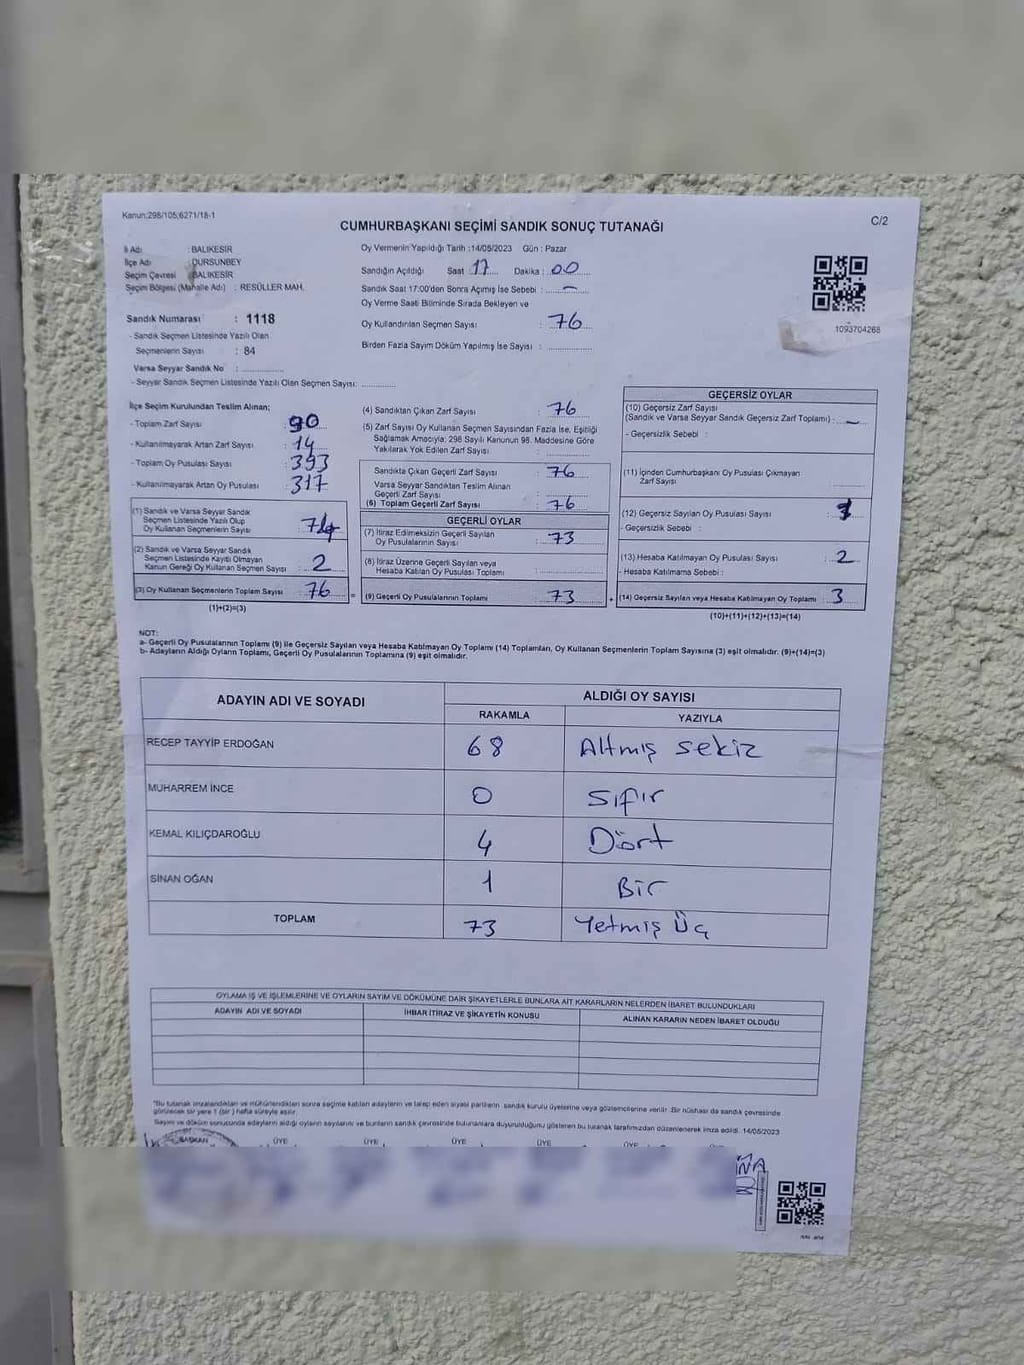 Kanun:298/105;6271/18-1
C/2
CUMHURBAŞKANI SEÇİMİ SANDIK SONUÇ TUTANAĞI
İl Adı : BALIKESİR
İlçe Adı : DURSUNBEY
Seçim Çevresi : BALIKESİR
Seçim Bölgesi (Mahalle Adı) : RESÜLLER MAH.
Sandık Numarası : 1118
- Sandık Seçmen Listesinde Yazılı Olan
Seçmenlerin Sayısı : 84
Varsa Seyyar Sandık No :
- Seyyar Sandık Seçmen Listesinde Yazılı Olan Seçmen Sayısı:
Oy Vermenin Yapıldığı Tarih :14/05/2023 Gün : Pazar
Sandığın Açıldığı Saat 17 Dakika : 00
Sandık Saat 17:00'den Sonra Açımış İse Sebebi : –
Oy Verme Saati Bitiminde Sırada Bekleyen ve
Oy Kullandırılan Seçmen Sayısı : 76
Birden Fazla Sayım Döküm Yapılmış İse Sayısı :
1093704268
İlçe Seçim Kurulundan Teslim Alınan;
- Toplam Zarf Sayısı : 90
- Kullanılmayarak Artan Zarf Sayısı : 14
- Toplam Oy Pusulası Sayısı : 393
- Kullanılmayarak Artan Oy Pusulası : 317
(1) Sandık ve Varsa Seyyar Sandık
Seçmen Listesinde Yazılı Olup
Oy Kullanan Seçmenlerin Sayısı : 74
(2) Sandık ve Varsa Seyyar Sandık
Seçmen Listesinde Kayıtlı Olmayan
Kanun Gereği Oy Kullanan Seçmen Sayısı : 2
(3) Oy Kullanan Seçmenlerin Toplam Sayısı : 76
(1)+(2)=(3)
(4) Sandıktan Çıkan Zarf Sayısı : 76
(5) Zarf Sayısı Oy Kullanan Seçmen Sayısından Fazla İse, Eşitliği
Sağlamak Amacıyla; 298 Sayılı Kanunun 98. Maddesine Göre
Yakılarak Yok Edilen Zarf Sayısı :
Sandıkta Çıkan Geçerli Zarf Sayısı : 76
Varsa Seyyar Sandıktan Teslim Alınan
Geçerli Zarf Sayısı
(6) Toplam Geçerli Zarf Sayısı : 76
GEÇERLİ OYLAR
(7) İtiraz Edilmeksizin Geçerli Sayılan
Oy Pusulalarının Sayısı : 73
(8) İtiraz Üzerine Geçerli Sayılan veya
Hesaba Katılan Oy Pusulası Toplamı :
(9) Geçerli Oy Pusulalarının Toplamı : 73
GEÇERSİZ OYLAR
(10) Geçersiz Zarf Sayısı
(Sandık ve Varsa Seyyar Sandık Geçersiz Zarf Toplamı) : –
- Geçersizlik Sebebi :
(11) İçinden Cumhurbaşkanı Oy Pusulası Çıkmayan
Zarf Sayısı
(12) Geçersiz Sayılan Oy Pusulası Sayısı :
- Geçersizlik Sebebi :
(13) Hesaba Katılmayan Oy Pusulası Sayısı : 2
- Hesaba Katılmama Sebebi :
(14) Geçersiz Sayılan veya Hesaba Katılmayan Oy Toplamı : 3
(10)+(11)+(12)+(13)=(14)
NOT:
a- Geçerli Oy Pusulalarının Toplamı (9) ile Geçersiz Sayılan veya Hesaba Katılmayan Oy Toplamı (14) Toplamları, Oy Kullanan Seçmenlerin Toplam Sayısına (3) eşit olmalıdır. (9)+(14)=(3)
b- Adayların Aldığı Oyların Toplamı, Geçerli Oy Pusulalarının Toplamına (9) eşit olmalıdır.
ADAYIN ADI VE SOYADI
ALDIĞI OY SAYISI
RAKAMLA YAZIYLA
RECEP TAYYİP ERDOĞAN 68 Altmış sekiz
MUHARREM İNCE 0 Sıfır
KEMAL KILIÇDAROĞLU 4 Dört
SİNAN OĞAN 1 Bir
TOPLAM 73 Yetmiş Üç
OYLAMA İŞ VE İŞLEMLERİNE VE OYLARIN SAYIM VE DÖKÜMÜNE DAİR ŞİKAYETLERLE BUNLARA AİT KARARLARIN NELERDEN İBARET BULUNDUKLARI
ADAYIN ADI VE SOYADI İHBAR İTİRAZ VE ŞİKAYETİN KONUSU ALINAN KARARIN NEDEN İBARET OLDUĞU
*Bu tutanak imzalandıktan ve mühürlendikten sonra seçime katılan adayların ve talep eden siyasi partilerin sandık kurulu üyelerine veya gözlemcilerine verilir. Bir nüshası da sandık çevresinde
görülecek bir yere 1 (bir ) hafta süreyle asılır.
Sayım ve döküm sonucunda adayların aldığı oyların sayılarını ve bunların sandık çevresinde bulunanlara duyurulduğunu gösteren bu tutanak tarafımızdan düzenlenerek imza edildi. 14/05/2023
BAŞKAN ÜYE ÜYE ÜYE ÜYE ÜYE